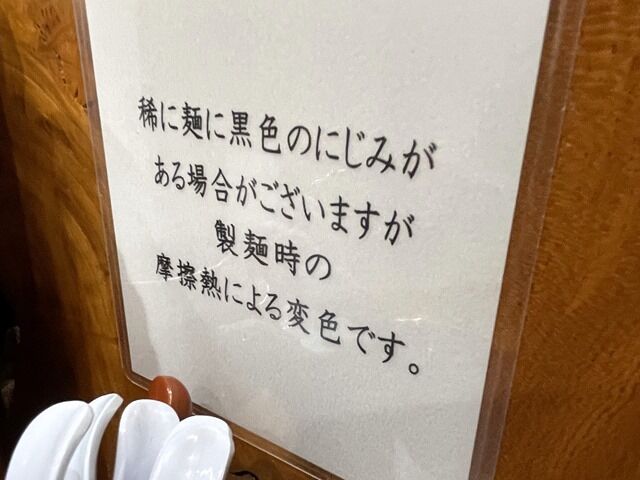 稀に麺に黒色のにじみが
ある場合がございますが
製麺時の
摩擦熱による変色です。